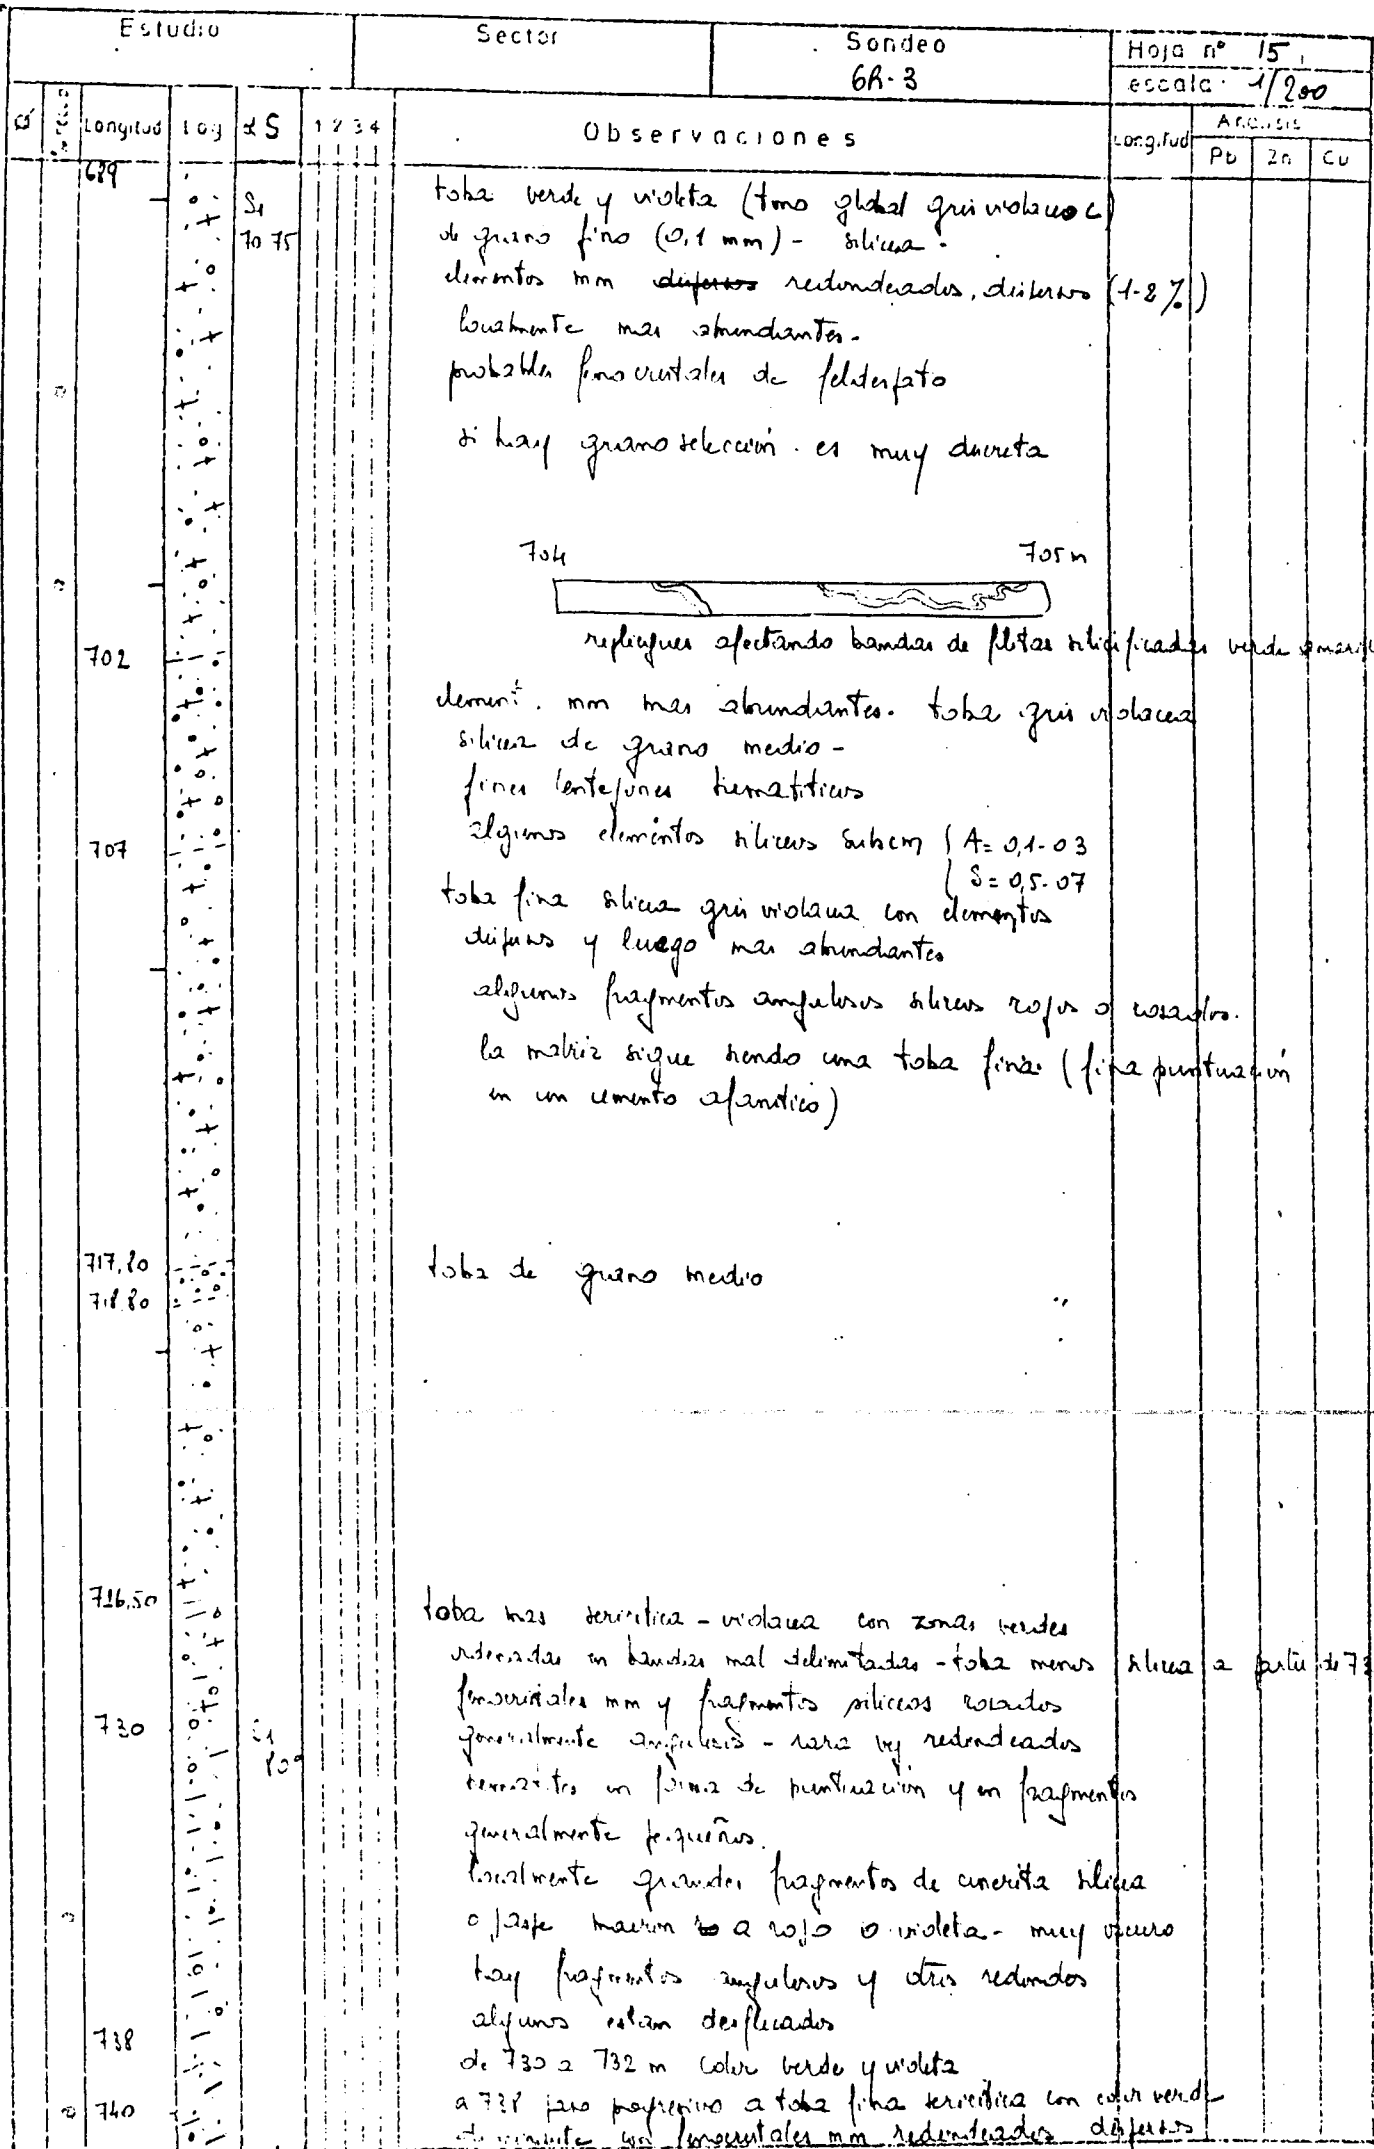 Estudio Sector Sondeo Hoja nº 15
6R-3 escala 1/200
Longitud Log α S 1 2 3 4 Observaciones Longitud Analisis
Pb Zn Cu
689
S1
70 75
toba verde y violeta (tono global gris violaceo
de grano fino (0,1 mm) - silicea -
elementos mm redondeados, dispersos (1-2 %)
localmente mas abundantes.
probables fenocristales de feldespato
si hay granoselección. es muy discreta
704 705 m
repliegues afectando bandas de filitas silicificadas verde
702
element. mm mas abundantes. toba gris violacea
silicea de grano medio -
finos lentejones hematiticos
707
algunos elementos siliceos subcm { A= 0,1-03
S= 0,5-07
toba fina silicea gris violacea con elementos
dispersos y luego mas abundantes
algunos fragmentos angulosos siliceos rojos o rosados.
la matriz sigue siendo una toba fina (fina puntuación
en un cemento afanitico)
717,80
718 80
toba de grano medio
716,50
toba mas sericitica - violacea con zonas verdes
ordenadas en bandas mal delimitadas - toba menos silicea a partir de 73
fenocristales mm y fragmentos siliceos rosados
730
generalmente angulosos - rara vez redondeados
hematites en forma de puntuación y en fragmentos
generalmente pequeños.
localmente grandes fragmentos de cinerita silicea
o jaspe marron a rojo o violeta - muy oscuro
hay fragmentos angulosos y otros redondos
algunos estan desflecados
738
de 730 a 732 m color verde y violeta
740
a 738 paso progresivo a toba fina sericitica con color verde
con fenocristales mm redondeados dispersos